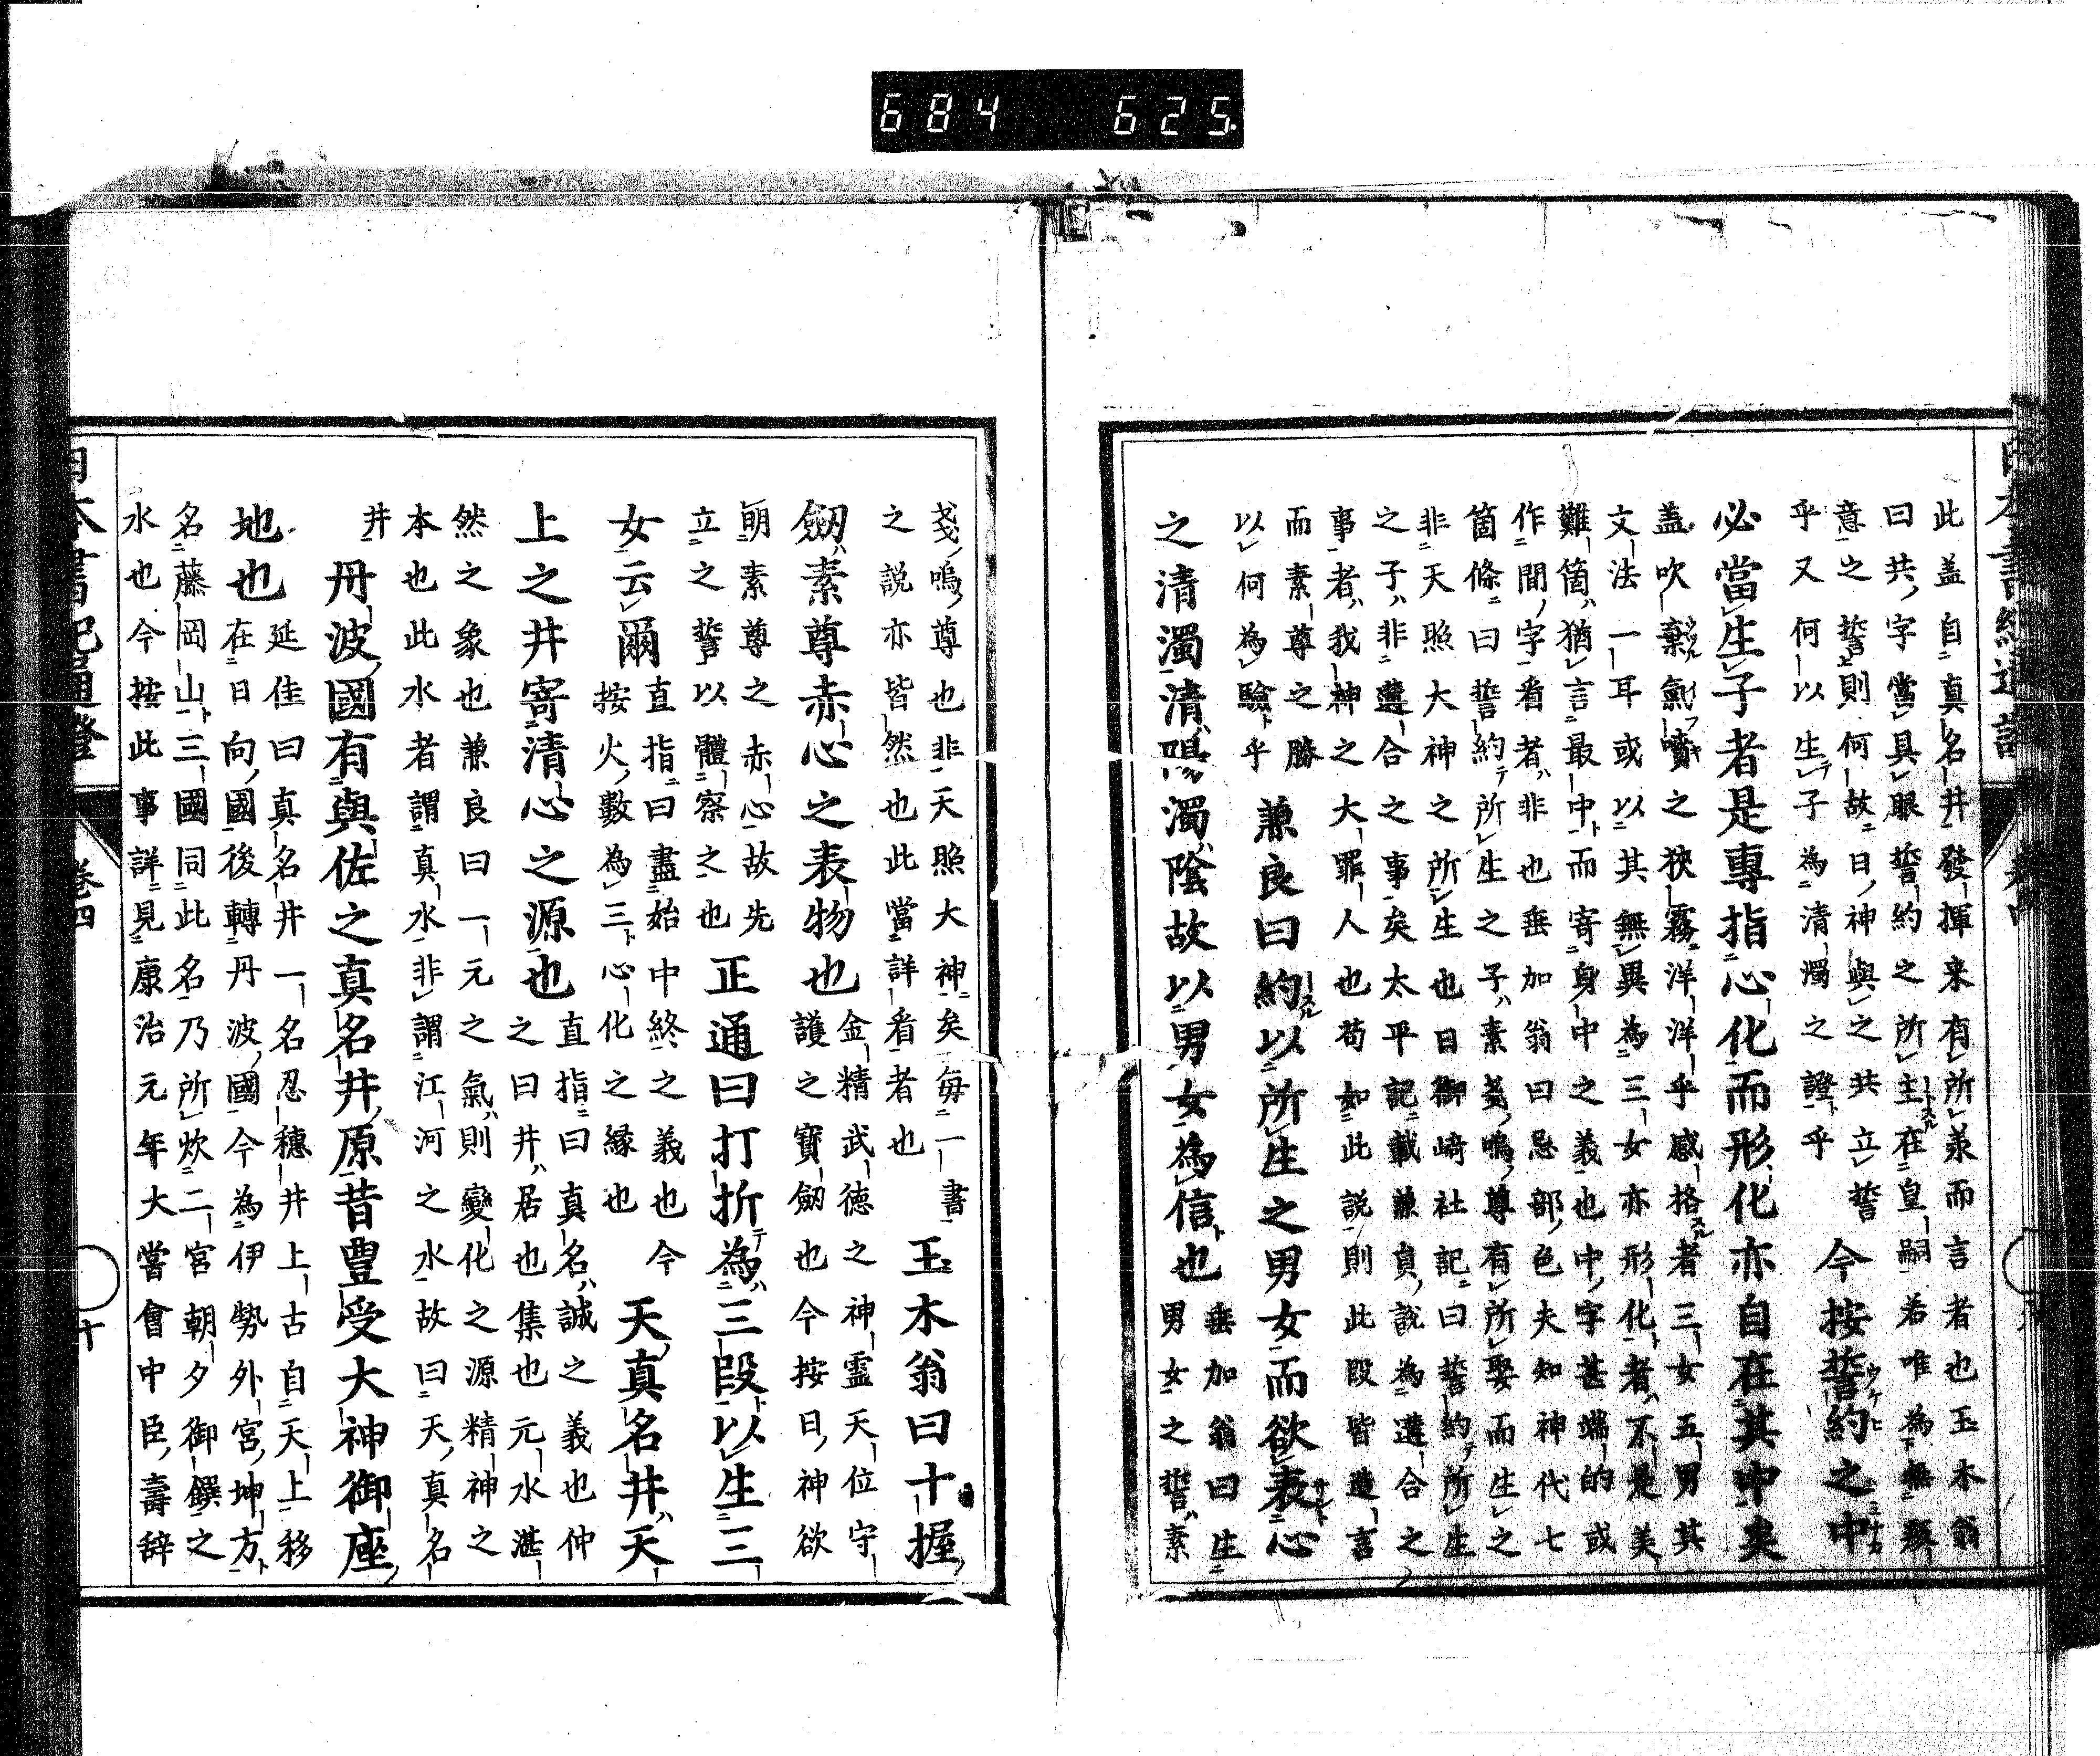 此盖自真名井發揮来有所羕而言者也玉木翁
曰共字當具眼誓約之所主在皇嗣若唯為無
意之誓則何故曰神與之共立誓
乎又何以生子為清濁之證乎
今按誓約之中
必當生子者是專指心化而形化亦自在其中矣
盖吹棄氣噴之狹霧洋洋乎感格者三女五男其
文法一耳或以其無異為三女亦形化者不是美
難箇猶言最中而寄身中之義也中字甚端的或
作間字看者非也垂加翁曰忌部色夫知神代七
箇條曰誓約所生之子素戔嗚尊有所娶而生之
非天照大神之所生也日御崎社記曰誓約所生
之子非遘合之事矣太平記載兼員說為遘合之
事者我神之大罪人也苟如此說則此段皆造言
而素尊之勝
以何為驗乎
兼良曰約以所生之男女而欲表心
之清濁清陽濁陰故以男女為信也
垂加翁曰生
男女之誓素
戔嗚尊也非天照大神矣每一書
之說亦皆然也此當詳看者也
玉木翁曰十握
劔素尊赤心之表物也
金精武德之神靈天位守
護之寶劔也今按日神欲
朙素尊之赤心故先
立之誓以體察之也
正通曰打折為三段以生三
女云爾
直指曰盡始中終之義也今
按火數為三心化之緣也
天真名井天
上之井寄清心之源也
直指曰真名誠之義也仲
之曰井居也集也元水湛
然之象也兼良曰一元之氣則變化之源精神之
本也此水者謂真水非謂江河之水故曰天真名
井
丹波國有與佐之真名井原昔豊受大神御座
地也
延佳曰真名井一名忍穗井上古自天上移
在日向國後轉丹波國今為伊勢外宮坤方
名藤岡山三國同此名乃所炊二宮朝夕御饌之
水也今按此事詳見康治元年大嘗會中臣壽辞
日本書紀通證
卷四
十
684 625